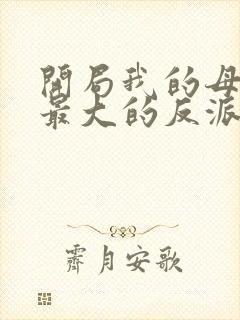 開局我的母
最大的反派
霽月安歌